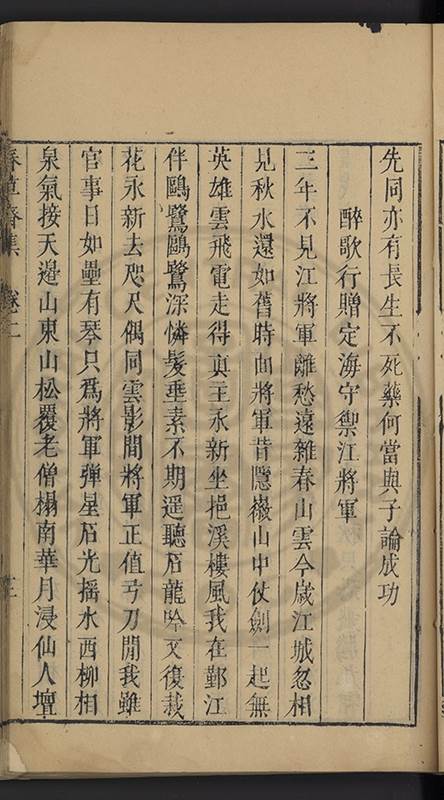 先同亦有長生不死藥何當與子論成功
醉歌行贈定海守禦江將軍
三年不見江將軍離愁遠雜春山雲今歲江城忽相
見秋水還如舊時面將軍昔隱嶶山中仗劍一起無
英雄雲飛電走得真主永新坐挹溪樓風我在鄞江
伴鷗鷺鷗鷺深憐髮垂素不期遥聽石龍吟又復栽
花永新去咫尺偶同雲影間將軍正值弓刀閒我雖
官事日如壘有琴只爲將軍彈星石光摇水西柳相
泉氣接天邊山東山松覆老僧榻南華月浸仙人壇
春草齋集 卷二